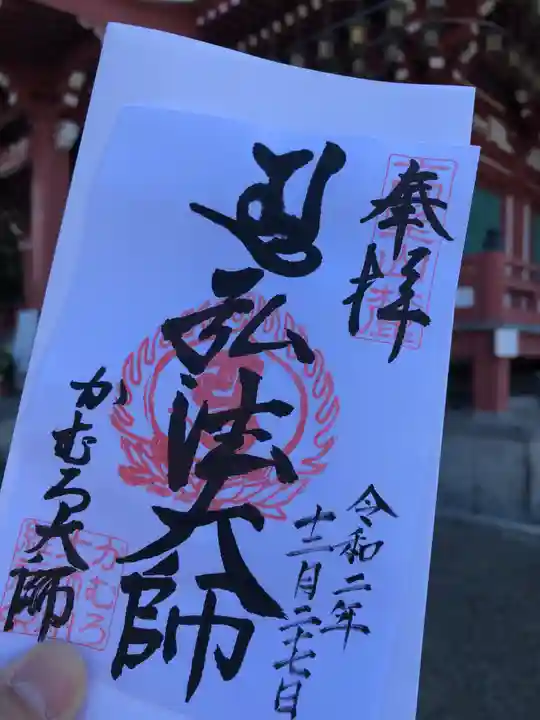 奉拝
弘法大師
かむろ大師
令和二年
十二月二十七日
かむろ